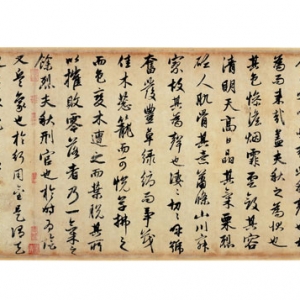 為而來哉蓋夫秋之為狀也
其色慘淡烟霏雲歛其容
清明天高日晶其氣栗烈
砭人肌骨其意蕭條山川寂
寥故其為聲也淒〻切〻呼號
奮發豐草綠縟而爭茂
佳木葱籠而可悅草拂之
而色變木遭之而葉脫其所
以摧敗零落者乃一氣之
餘烈夫秋刑官也於時為陰
又兵象也於行用金是謂天